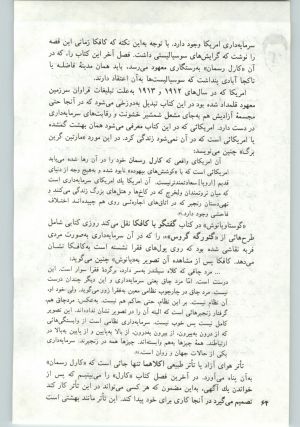 سرمایه‌داری امریکا وجود دارد. با توجه باین نکته که کافکا زمانی این قصه
را نوشت که گرایش‌های سوسیالیستی داشت. فصل آخر این کتاب را، که در
آن «کارل رسمان» به‌رستگاری معهود می‌رسد، باید همان مدینهٔ فاضله یا
ناکجا آبادی پنداشت که سوسیالیست‌ها به‌آن اعتقاد دارند.
امریکا که در سال‌های ۱۹۱۲ و ۱۹۱۳ به‌علت تبلیغات فراوان سرزمین
معهود قلمداد شده بود در این کتاب تبدیل به‌دوزخی می‌شود که در آنجا حتی
مجسمهٔ آزادیش هم به‌جای مشعل شمشیر خشونت و رقابت‌های سرمایه‌داری
در دست دارد. امریکائی که در این کتاب معرفی می‌شود همان بهشت گمشده
یا امریکائی است که در آن نمی‌شود زندگی کرد. در این مورد «مارتین گرین
برگ» چنین می‌نویسد:
آن امریکای واقعی که کارل رسمان خود را در آن رها شده می‌یابد
امریکائی است که با «کوشش‌های بیهوده» نابود شده و به‌هیچ وجه از دنیای
قدیم [اروپا] سعادتمندتر نیست. آن امریکا یک امریکای سرمایه‌داری است
که میان ثروتمندان ولخرج که در کاخها و هتل‌های بزرگ زندگی می‌کنند و
تهی‌دستان رنجبر که در اتاق‌های اجاره‌ئی روی هم چپیده‌اند اختلاف
فاحشی وجود دارد.»
«گوستاو یانوش» در کتاب گفتگو با کافکا نقل می‌کند روزی کتابی شامل
طرح‌هائی از «گئورگه گروس»، را که در آن سرمایه‌داری به‌صورت مردی
فربه نقاشی شده بود که روی پول‌های فقرا نشسته است به‌کافکا نشان
می‌دهد. کافکا پس از مشاهدهٔ آن تصویر به‌«یانوش» چنین می‌گوید:
... مرد چاقی که کلاه سیلندر بسر دارد، برگردهٔ فقرا سوار است. این
درست است. امّا مرد چاق یعنی سرمایه‌داری و این دیگر چندان درست
نیست. مرد چاق در چارچوب نظامی معین به‌فقرا زور می‌گوید. ولی خود او،
آن نظام نیست. بر این نظام، حتی حاکم هم نیست. به‌عکس: مرد چاق هم،
گرفتار زنجیرهائی است که البته آن را در تصویر نشان نداده‌اند. این تصویر
کامل نیست پس خوب نیست. سرمایه‌داری نظامی است از وابستگی‌هائی
که از درون به‌بیرون، از بیرون به‌درون، از بالا به‌پایین و از پایین به‌بالا در
ارتباطند. همهٔ چیزها به‌هم وابسته‌اند. چیزها همه در زنجیرند. سرمایه‌داری
یکی از حالات جهان و روان است.»
تأتر هوای آزاد یا تأتر طبیعی اکلاهما تنها جائی است که «کارل رسمان»
به‌آن پناه می‌آورد. در آخرین فصل کتاب «کارل» را می‌بینیم که پس از
خواندن یک آگهی، به‌این مضمون که هر کسی می‌تواند در این تأتر کار کند
تصمیم می‌گیرد در آنجا کاری برای خود پیدا کند. این تأتر مانند بهشتی است
۶۴